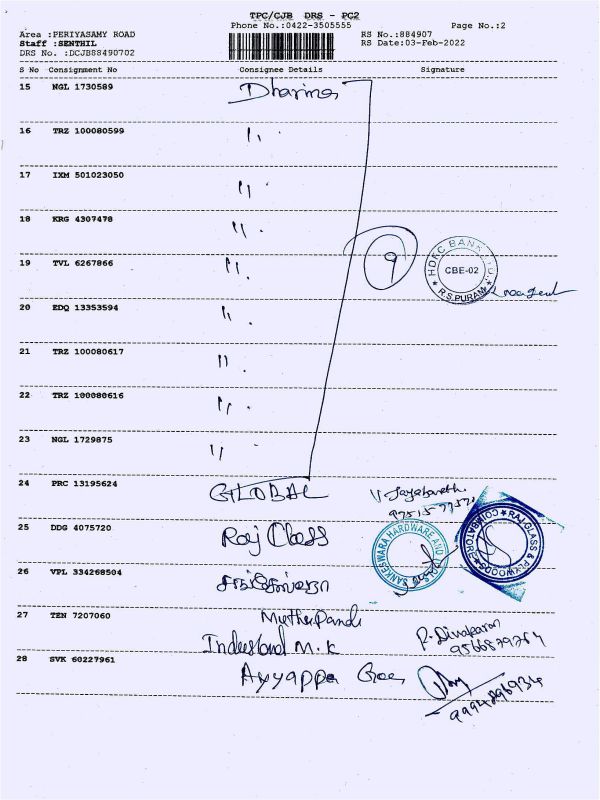 TPC/CJB DRS - PC2
Phone No.:0422-3505555 Page No.:2
Area :PERIYASAMY ROAD RS No.:884907
Staff :SENTHIL RS Date:03-Feb-2022
DRS No. :DCJB88490702
S No Consignment No Consignee Details Signature
15 NGL 1730589 Dharma
16 TRZ 100080599 "
17 IXM 501023050 "
18 KRG 4307478 "
9
HDFC BANK LTD.
CBE-02
R.S.PURAM
19 TVL 6267866 "
20 EDQ 13353594 "
21 TRZ 100080617 "
22 TRZ 100080616 "
23 NGL 1729875 "
24 PRC 13195624 GLOBAL
25 DDG 4075720 Raj Class
SANKESWARA HARDWARE AND
RAJ GLASS & PLYWOODS
COIMBATORE
26 VPL 334268504
27 TEN 7207060 Muthu Pandi
Indusland M.K P. Dinakaran
9566879764
28 SVK 60227961 Ayyappa
9994896934